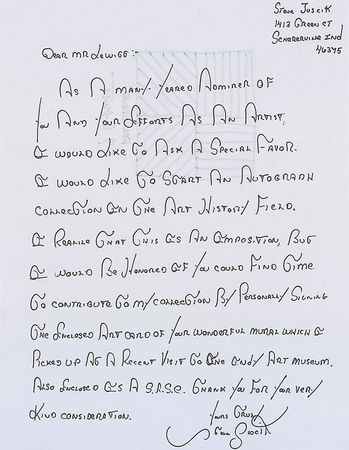 Steve Juscik
1413 Green Ct
Schererville Ind
46375
Dear Mr Lewitt :-
As A Many Yeared Admirer Of
You And Your Efforts As An Artist,
I Would Like To Ask A Special Favor.
I Would Like To Start An Autograph
Collection In The Art History Field.
I Realize That This Is An Imposition, But
I Would Be Honored If You Could Find Time
To Contribute To My Collection By Personally Signing
The Enclosed Art Card Of Your Wonderful Mural Which I
Picked Up At A Recent Visit To The Indy Art Museum.
Also Enclosed Is A S.A.S.E. Thank You For Your Very
Kind Consideration.
Yours Truly,